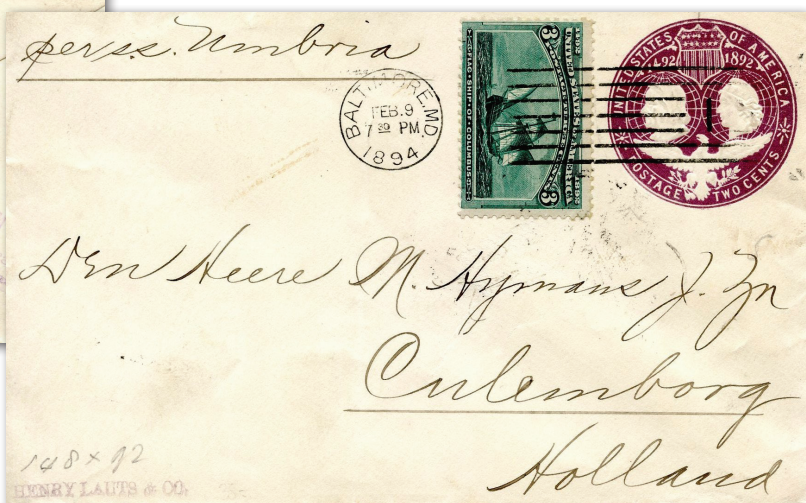 per s.s. Umbria
BALTIMORE, MD.
FEB. 9
7 30 PM.
1894
3 3
1492 UNITED STATES OF AMERICA 1892
FLAG SHIP OF COLUMBUS
UNITED STATES OF AMERICA
1492 1892
POSTAGE TWO CENTS
Den Heere M. Hymans J. Zn
Culemborg
Holland
148 x 92
HENRY LAUTS & CO.